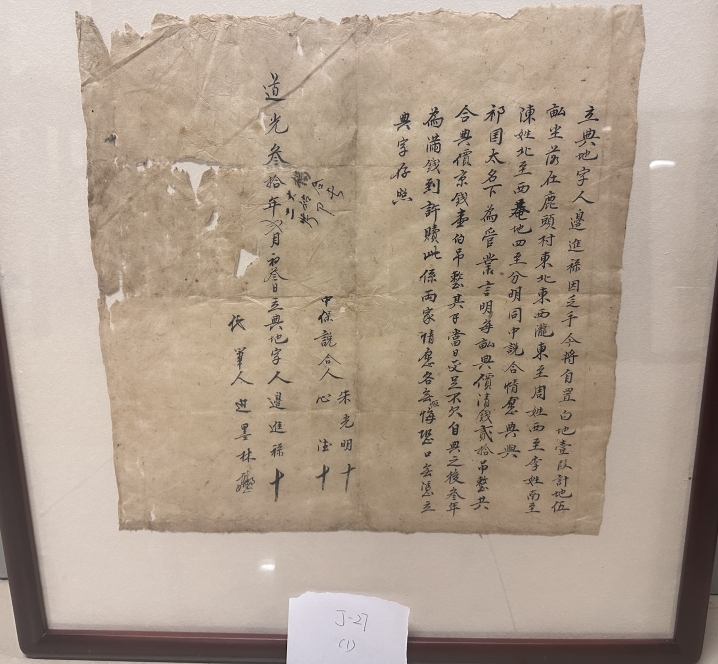 立典地字人邊進祿因乏手今將自置白地壹段計地伍
畝坐落在鹿頭村東北東西瓏東至周姓西至李姓南至
陳姓北至西菴地四至分明同中說合情愿典與
祁国太名下為管業言明每畝典價清錢貳拾吊整共
合典價京錢壹伯吊整其錢當日交足不欠自典之後叁年
為滿錢到許贖此係兩家情愿各無反悔恐口無憑立
典字存照
中保說合人
朱光明 十
心法 十
道光叁拾年 月初叁日立典地字人邊進祿 十
代筆人 墨林
J-27
(1)